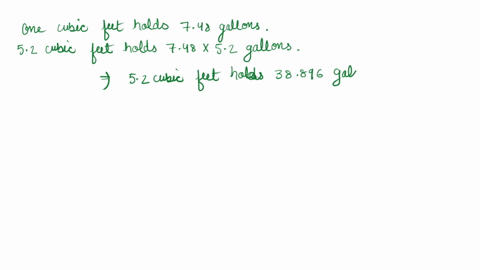 one cubic feet holds 7.48 gallons.
5.2 cubic feet holds 7.48 x 5.2 gallons.
⇒ 5.2 cubic feet holds 38.896 gal